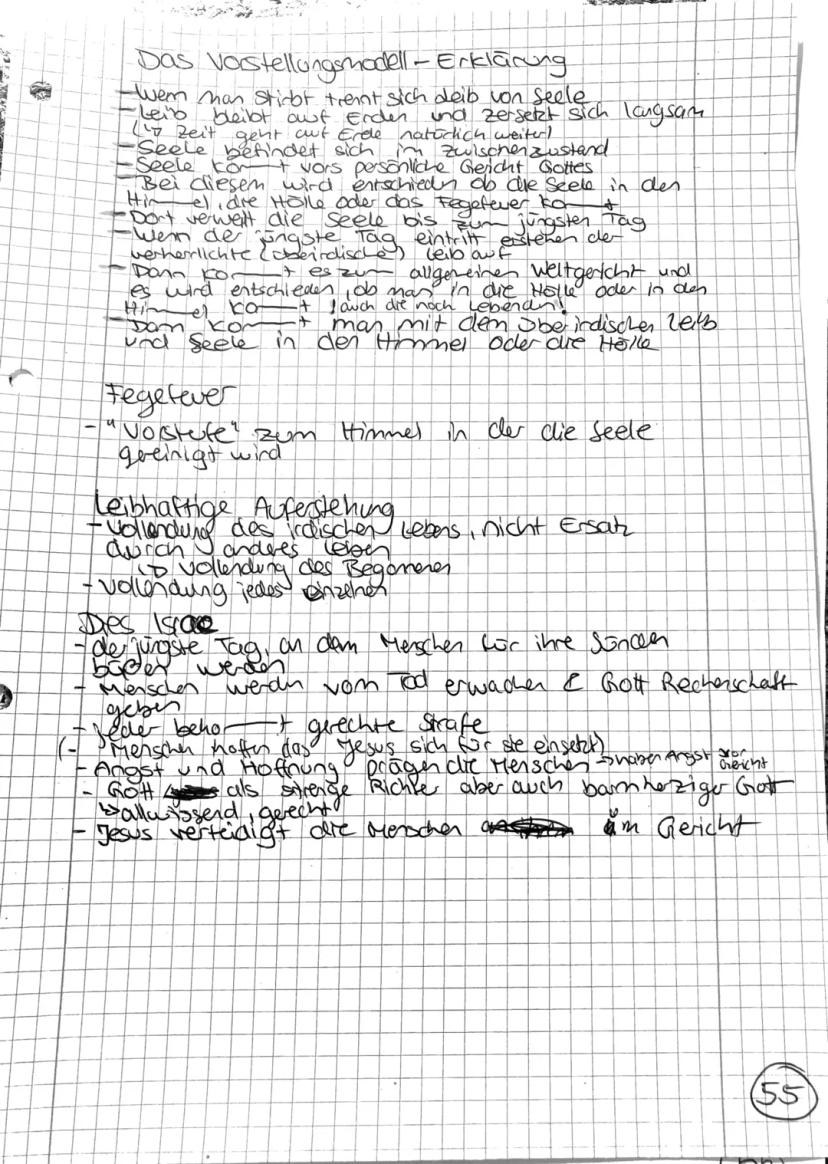 Das Vorstellungsmodell - Erklärung
- Wenn man stirbt trennt sich Leib von Seele
- Leib bleibt auf Erden und zersetzt sich langsam
(↳ Zeit geht auf Erde natürlich weiter)
- Seele befindet sich im Zwischenzustand
- Seele kommt vors persönliche Gericht Gottes
Bei diesem wird entschiedn ob die Seele in den
Himmel, die Hölle oder das Fegefeuer kommt
- Dort verweilt die Seele bis zum jüngsten Tag
- Wenn der jüngste Tag eintritt erstehen der
verherrlichte (überirdische) Leib auf
- Dann kommt es zum allgemeinen Weltgericht und
es wird entschieden, ob man in die Hölle oder in den
Himmel kommt (auch die noch Lebenden!
- Dann kommt man mit dem überirdischen Leib
und Seele in den Himmel oder die Hölle
Fegefeuer
- "Vorstufe" zum Himmel in der die Seele
gereinigt wird
Leibhaftige Auferstehung
- Vollendung des irdischen Lebens, nicht Ersatz
durch anderes Leben
↳ Vollendung des Begonnenen
- Vollendung jedes einzelnen
Des Irae
- der jüngste Tag, an dem Menschen für ihre Sünden
büßen werden
- Menschen werdn vom Tod erwachen & Gott Rechenschaft
geben
- Jeder bekommt gerechte Strafe
(- Menschen hoffen das Jesus sich für sie einsetzt)
- Angst und Hoffnung prägen die Menschen → haben Angst vor Gericht
- Gott als strenge Richter aber auch barmherziger Gott
↳ allwissend, gerecht
- Jesus verteidigt die Menschen im Gericht
55